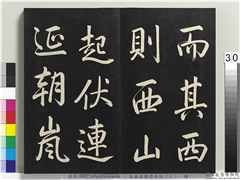 而其西
則西山
起伏連
延朝嵐
30